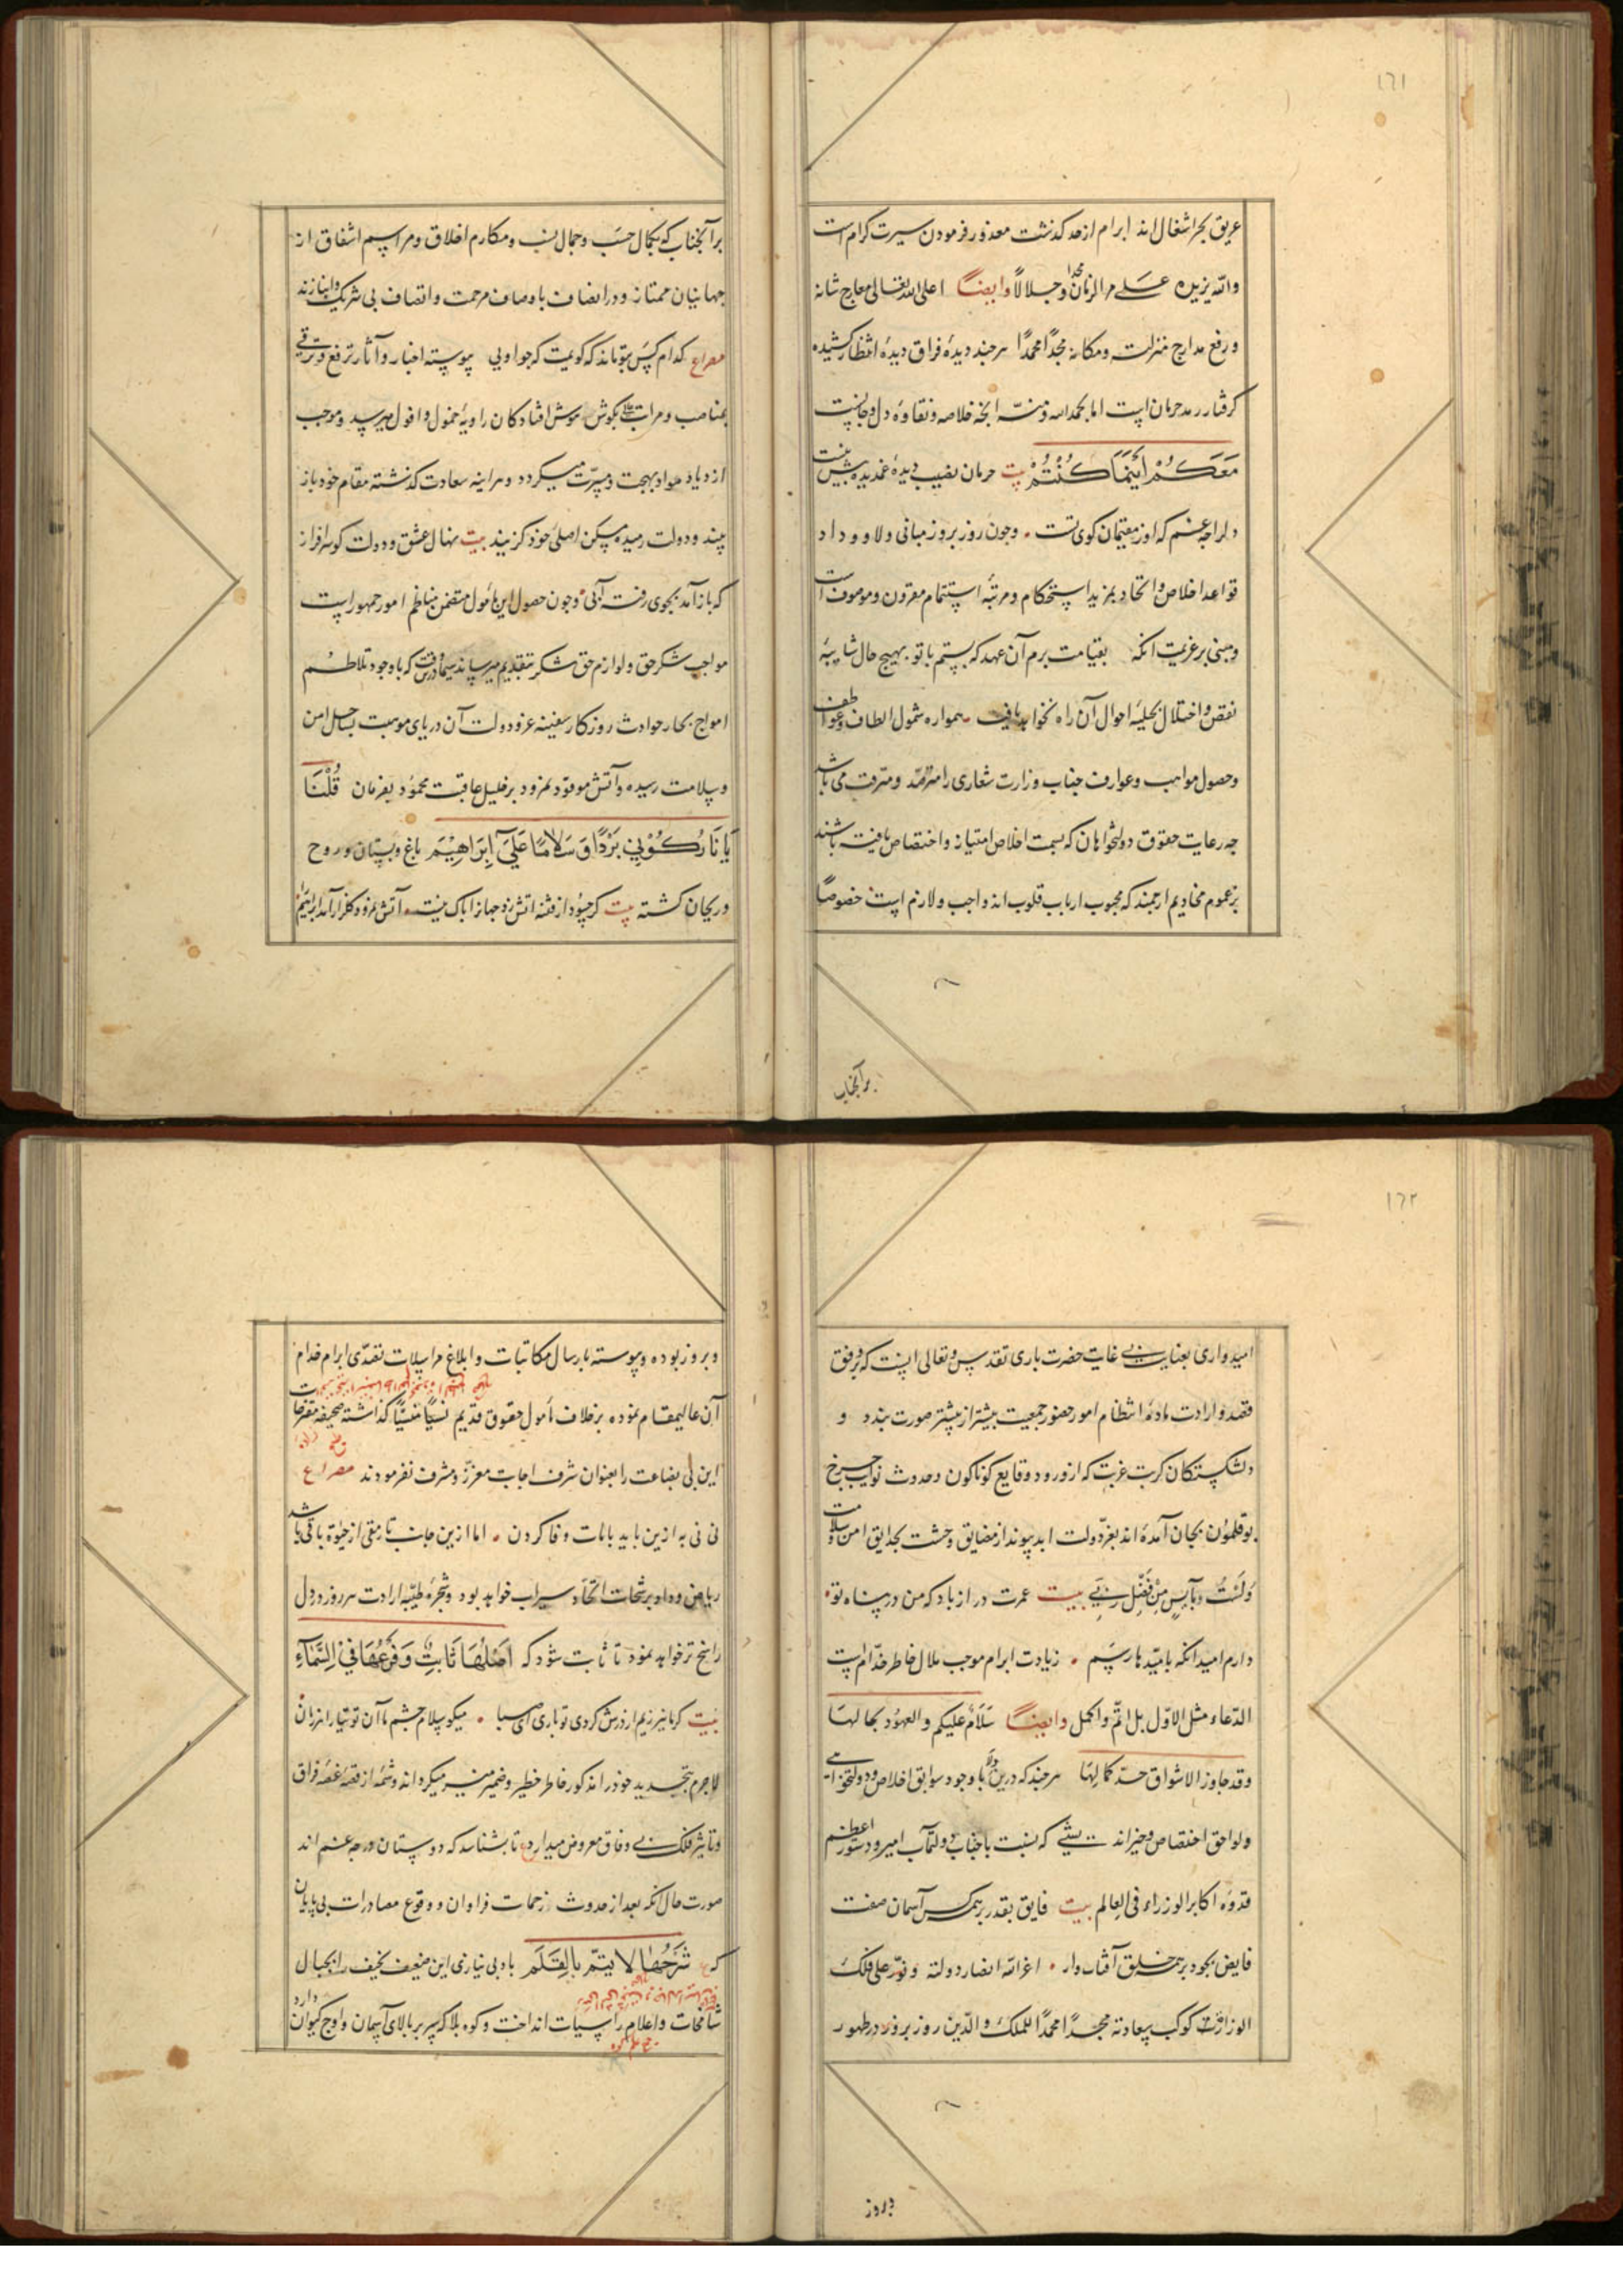 ١٦١
غریق بحر اشغال اند ابرام از حد گذشت معذور فرمودن سیرت کرام است
والله یزیده علی مر الزمان مجدا وجلالاً وایضاً اعلی الله تعالی معارج شانه
ورفع مدارج منزلته ومکانه مجدًا محمدًا هرچند دیدهٔ فراق دیده انتظار کشیده
گرفتار رمد حرمان است اما بحمدالله ومنه آنچه خلاصه ونقاوهٔ دل وجانست
مَعَكُمْ أَيْنَمَا كُنْتُمْ بیت حرمان نصیب دیدهٔ غمدیده بیش نیست
دلرا چه غم که از مقیمان کوی تست . وچون روز بروز مبانی ولا و وداد
قواعد اخلاص واتحاد بمزید استحکام ومرتبهٔ استتمام مقرون وموصوف است
ومبنی بر عزیمت آنکه بقیامت برم آن عهد که بستم با تو . بهیچ حال شایبهٔ
نقص واختلال بحلیهٔ احوال آن راه نخواهد یافت . همواره شمول الطاف وعواطف
وحصول مواهب وعوارف جناب وزارت شعاری را مترصد ومترقب می باشد
چه رعایت حقوق دولتخواهان که بسمت اخلاص امتیاز واختصاص یافته باشند
بر عموم مخادیم ارجمند که محبوب ارباب قلوب اند واجب ولازم است خصوصاً
بر آنجناب
بر آنجناب که بکمال حسب وجمال نسب ومکارم اخلاق ومراسم اشفاق از
جهانیان ممتاز ودر اتصاف باوصاف مرحمت وانصاف بی شریک وانبازند
مصراع کدام کس بتو ماند که گویمت که چو اویی پیوسته اخبار وآثار ترفع وترقی
بمناصب ومراتب بگوش هوش افتادگان زاویهٔ خمول وافول میرسید وموجب
ازدیاد مواد بهجت ومسرت میگردد وهرآینه سعادت گذشته مقام خود باز
بیند ودولت رمیده مسکن اصلی خود گزیند بیت نهال عشق ودولت گو سرافراز
که باز آمد بجوی رفته آبی . وچون حصول این مأمول متضمن مناظم امور جمهور است
مواجب شکر حق ولوازم حق شکر بتقدیم میرساند سیما درین وقت که باوجود تلاطم
امواج بحار حوادث روزگار سفینهٔ عز ودولت آن دریای موهبت بساحل امن
وسلامت رسیده وآتش موقود نمرود بر خلیل عاقبت محمود بفرمان قُلْنَا
يَا نَارُ كُونِي بَرْدًا وَسَلَامًا عَلَىٰ إِبْرَاهِيمَ باغ وبستان وروح
وریحان گشته بیت گر چو از فتنه اتش نزد جهانرا باک نیست . آتش نمرود گلزار آمد ابراهیم را
١٦٢
امیدواری بعنایت بی غایت حضرت باری تقدس وتعالی اینست که بر وفق
قصد وارادت مادهٔ انتظام امور حضور جمعیت بیشتر از پیشتر صورت بندد و
دلشکستگان کربت غربت که از ورود وقایع گوناگون وحدوث نوایب چرخ
بوقلمون بجان آمده اند بفر دولت ابد پیوند از مضایق وحشت بحدایق امن وسلامت
وَلَسْتُ بآيسٍ مِنْ فَضْلِ رَبِّي بیت عمرت دراز باد که من در پناه تو .
دارم امید آنکه بامیدها رسم . زیادت ابرام موجب ملال خاطر خدام است
الدعاء مثل الاول بل اتم واکمل وایضاً سَلَامٌ علیکم والعهود بحالها
وقد جاوز الاشواق حدّ کمالِها هرچند که درین ولا باوجود سوابق اخلاص ودولتخواهی
ولواحق اختصاص که نسبت با جناب دولتمآب امیر ودستور اعظم
قدوهٔ اکابر الوزراء فی العالم بیت فایق بقدر بر همه کس آسمان صفت
فایض بجود بر همه خلق آفتاب وار . اعز الله انصار دولته ونور علی فلک
الوزارة کوکب سعادته مجدًا محمدًا للملک والدین روز بروز در ظهور
وبروز
وبروز بوده وپیوسته بارسال مکاتبات وابلاغ مراسلات تصدی ابرام خدام
آن عالیمقام نموده بر خلاف مأمول حقوق قدیم نسیًا منسیًا گذاشته صحیفه مفترضات
این بی بضاعت را بعنوان شرف اجابت معزز ومشرف نفرمودند مصراع
نی نی به ازین باید با مات وفا کردن . اما ازین جانب تا رمقی از حیوة باقی باشد
ریاض وداد برشحات اتحاد سیراب خواهد بود وشجرهٔ طیبه ارادت هر روز در دل
راسخ تر خواهد نمود تا ثابت شود که أَصْلُهَا ثَابِتٌ وَفَرْعُهَا فِي السَّمَاءِ
لاجرم بتجدید خود را مذکور خاطر خطیر وضمیر منیر میگرداند وشمهٔ از قصهٔ غصهٔ فراق
وتأثیر فلک بی وفاق معروض میدارد ع تا بشناسد که دوستان در چه غم اند
صورت حال آنکه بعد از حدوث زحمات فراوان ووقوع مصادرات بی پایان
که ع شَرْحُهَا لا يتمّ بالقَلَم باد بی نیازی این ضعیف نحیف را بجبال
شامخات واعلام راسیات انداخت وکوه بلا که سر بر بالای آسمان واوج کیوان دارد